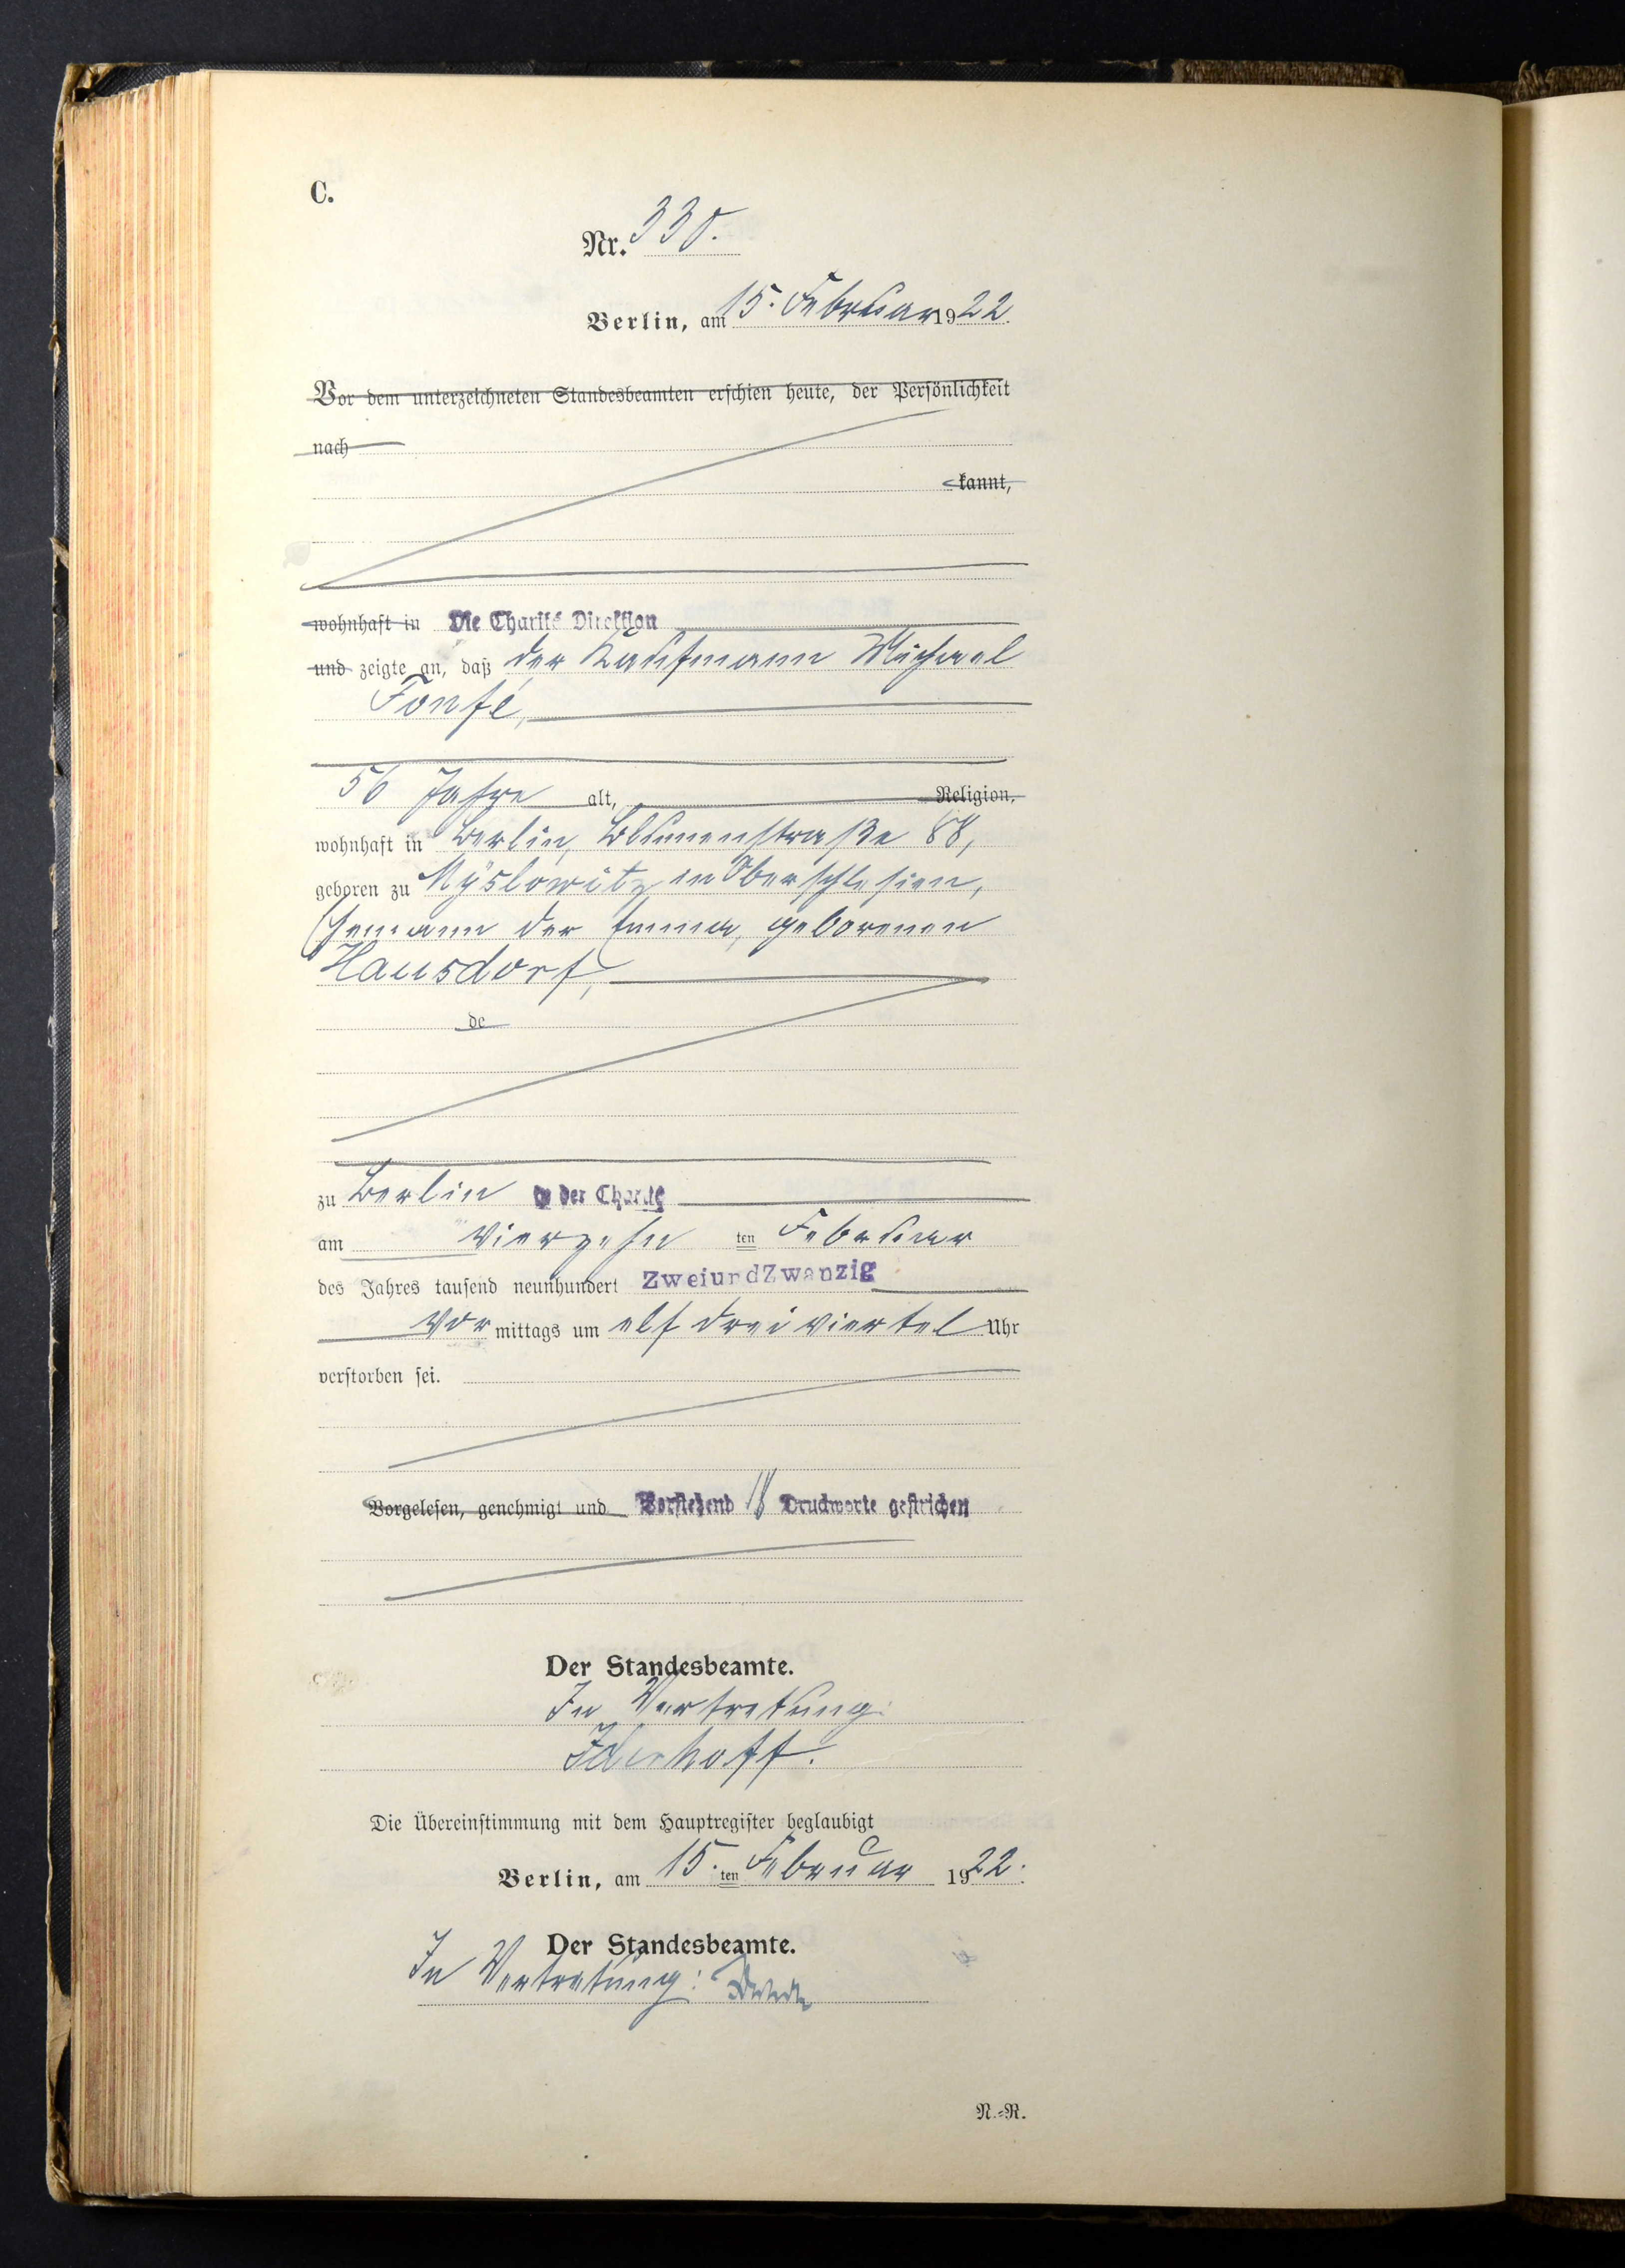 C.
Nr. 330.
Berlin, am 15. Februar 1922.
Vor dem unterzeichneten Standesbeamten erschien heute, der Persönlichkeit
nach
kannt,
wohnhaft in Die Charité Direktion
und zeigte an, daß der Kaufmann Michael
Fonfé,
56 Jahre alt, Religion,
wohnhaft in Berlin, Blumenstraße 88,
geboren zu Myslowitz in Oberschlesien,
Ehemann der Emma, geborenen
Hausdorf,
de
zu Berlin in der Charité
am vierzehn ten Februar
des Jahres tausend neunhundert ZweiundZwanzig
Vor mittags um elf dreiviertel Uhr
verstorben sei.
Vorgelesen, genehmigt und Vorstehend 18 Druckworte gestrichen
Der Standesbeamte.
In Vertretung:
Die Übereinstimmung mit dem Hauptregister beglaubigt
Berlin, am 15. ten Februar 1922.
Der Standesbeamte.
In Vertretung:
N.-R.